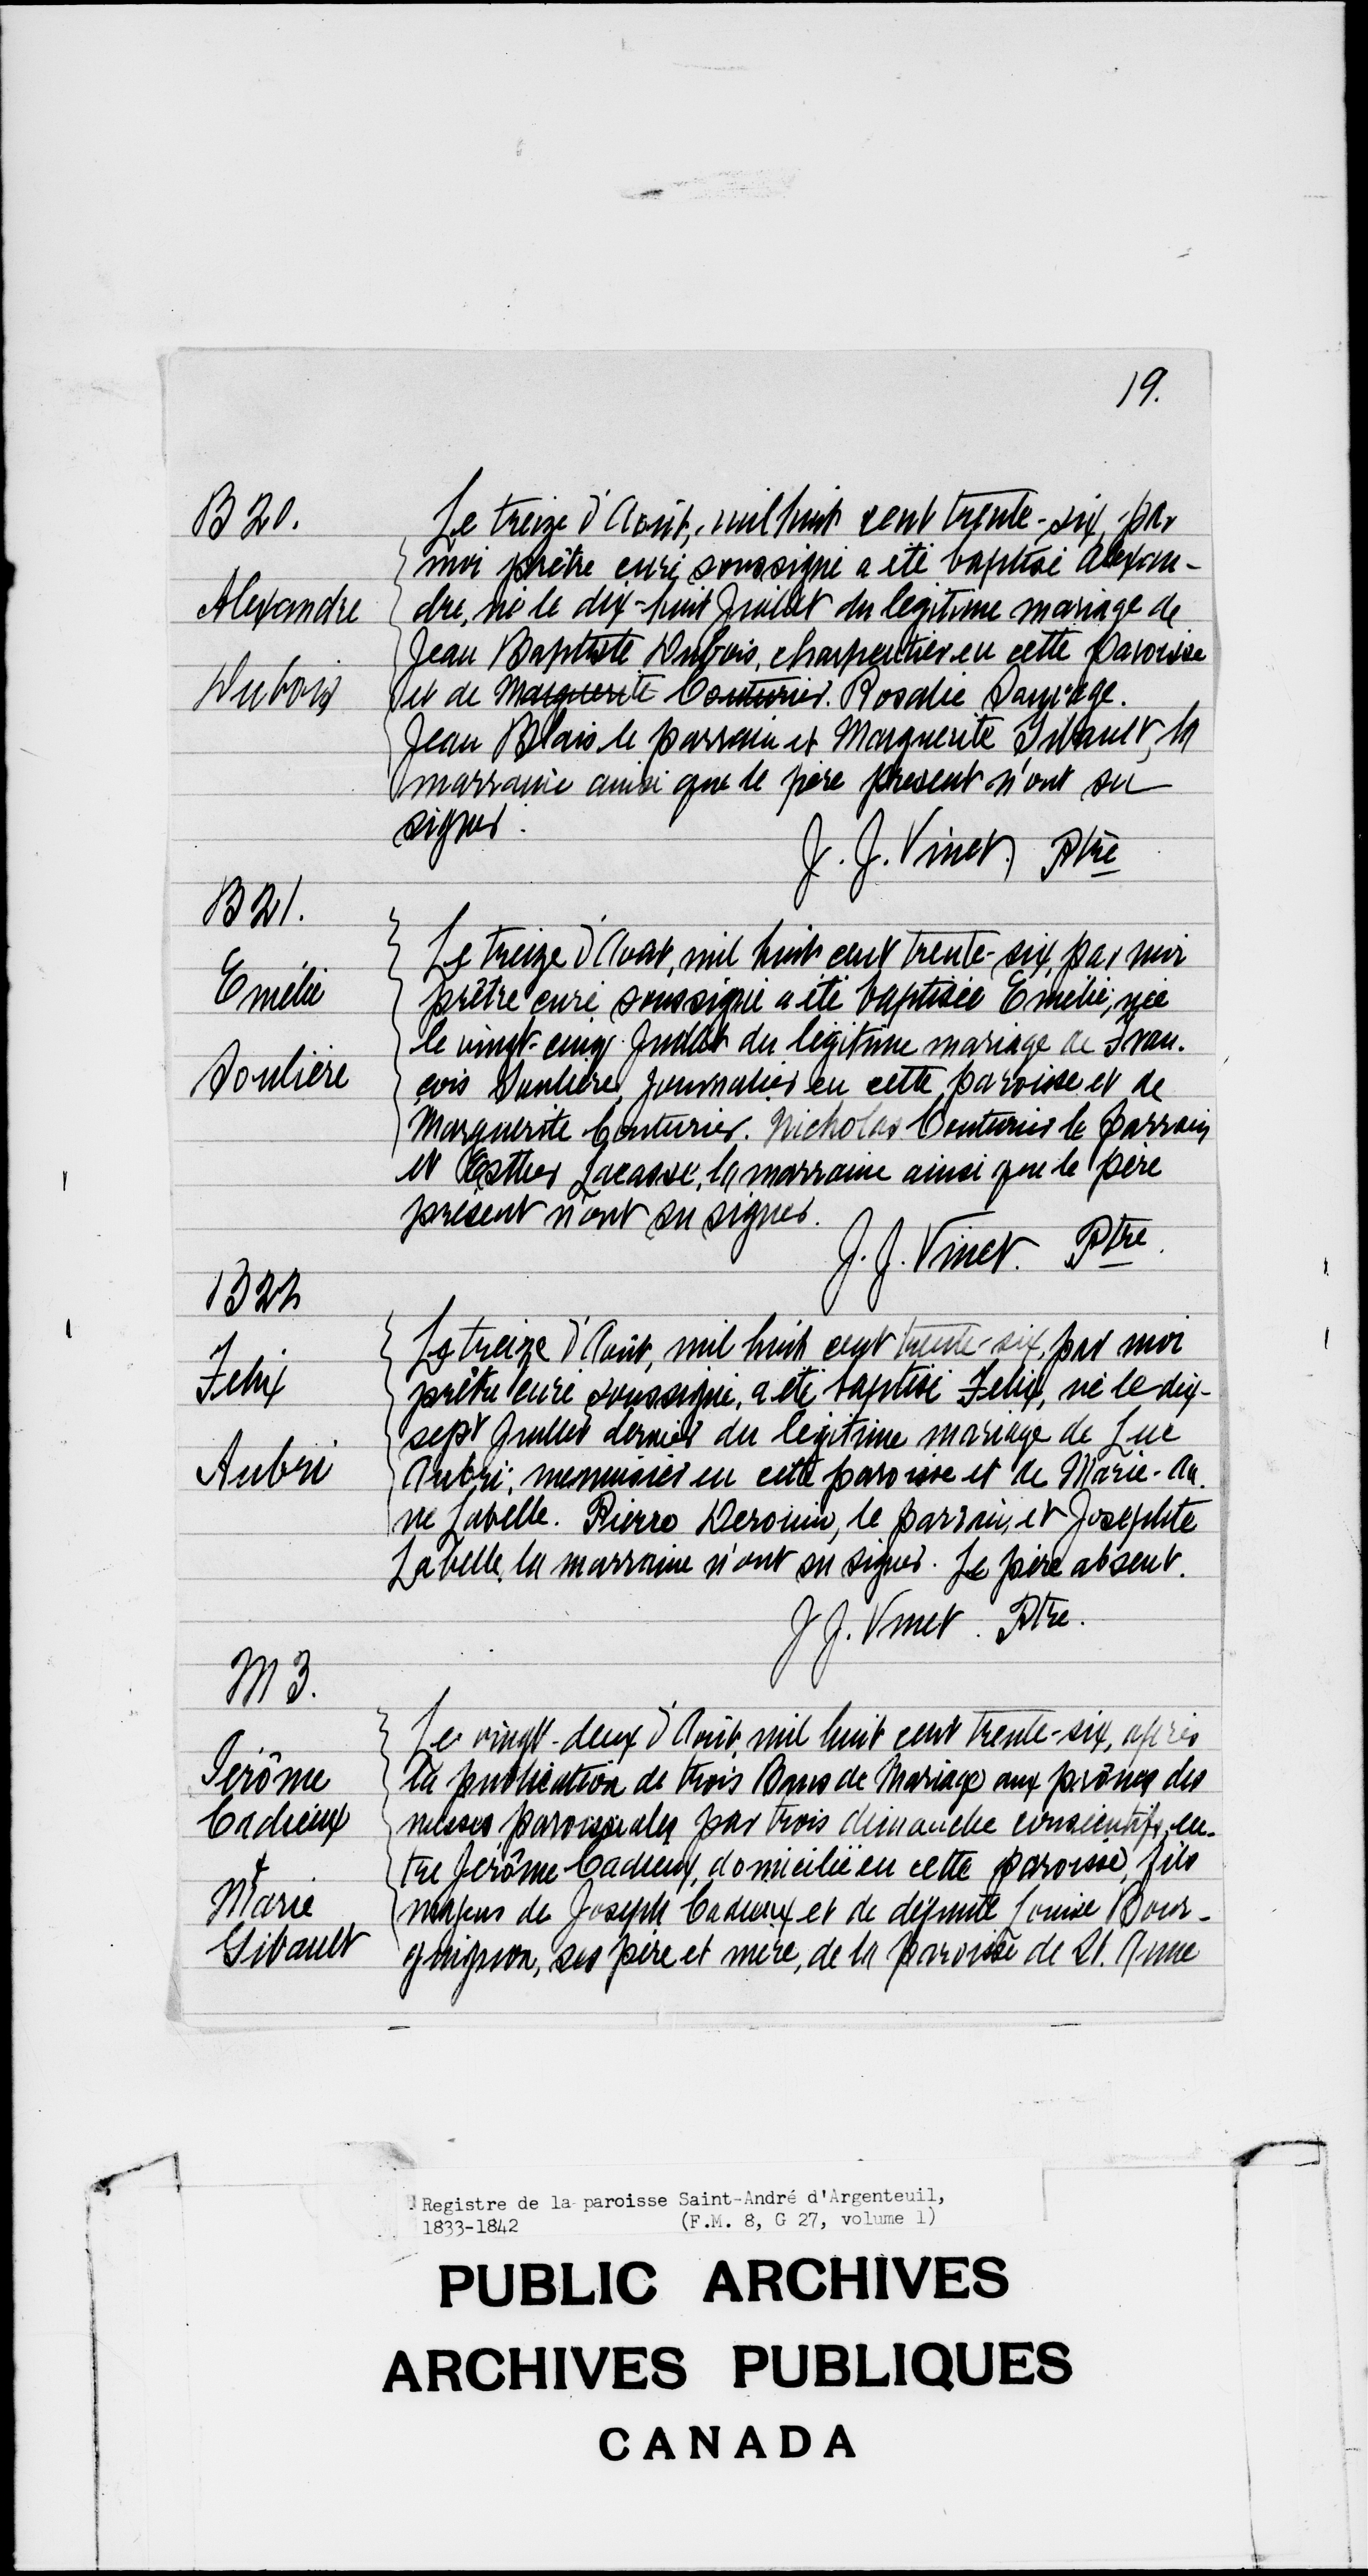 19.
B 20.
Alexandre
Dubois
Le treize d'Août, mil huit cent trente-six, par
moi prêtre curé soussigné a été baptisé Alexan-
dre, né le dix-huit Juillet du légitime mariage de
Jean Baptiste Dubois, charpentier en cette paroisse
et de Marguerite Couturier. Rosalie Sauvage.
Jean Blais le parrain et Marguerite Gibault, la
marraine ainsi que le père présent n'ont su
signer.
J. J. Vinet, Ptre
B 21.
Emélie
Soulière
Le treize d'Août, mil huit cent trente-six, par moi
prêtre curé soussigné a été baptisée Emélie, née
le vingt-cinq Juillet du légitime mariage de Fran-
çois Soulière, journalier en cette paroisse et de
Marguerite Couturier. Nicholas Couturier le parrain
et Esther Lacasse, la marraine ainsi que le père
présent n'ont su signer.
J. J. Vinet. Ptre.
B 22
Felix
Aubri
Le treize d'Août, mil huit cent trente-six, par moi
prêtre curé soussigné, a été baptisé Felix, né le dix-
sept Juillet dernier du légitime mariage de Luc
Aubri, menuisier en cette paroisse et de Marie-An-
ne Labelle. Pierre Derouin, le parrain, et Josephte
Labelle, la marraine n'ont su signer. Le père absent.
J J. Vinet. Ptre.
M 3.
Jérôme
Cadieux
&
Marie
Gibault
Le vingt-deux d'Août, mil huit cent trente-six, après
la publication de trois Bans de Mariage aux prônes des
messes paroissiales par trois dimanche consécutifs, en-
tre Jérôme Cadieux, domicilié en cette paroisse, fils
majeur de Joseph Cadieux et de défunte Louise Bour-
guignon, ses père et mère, de la paroisse de St. Anne
Registre de la paroisse Saint-André d'Argenteuil,
1833-1842 (F.M. 8, G 27, volume 1)
PUBLIC ARCHIVES
ARCHIVES PUBLIQUES
CANADA